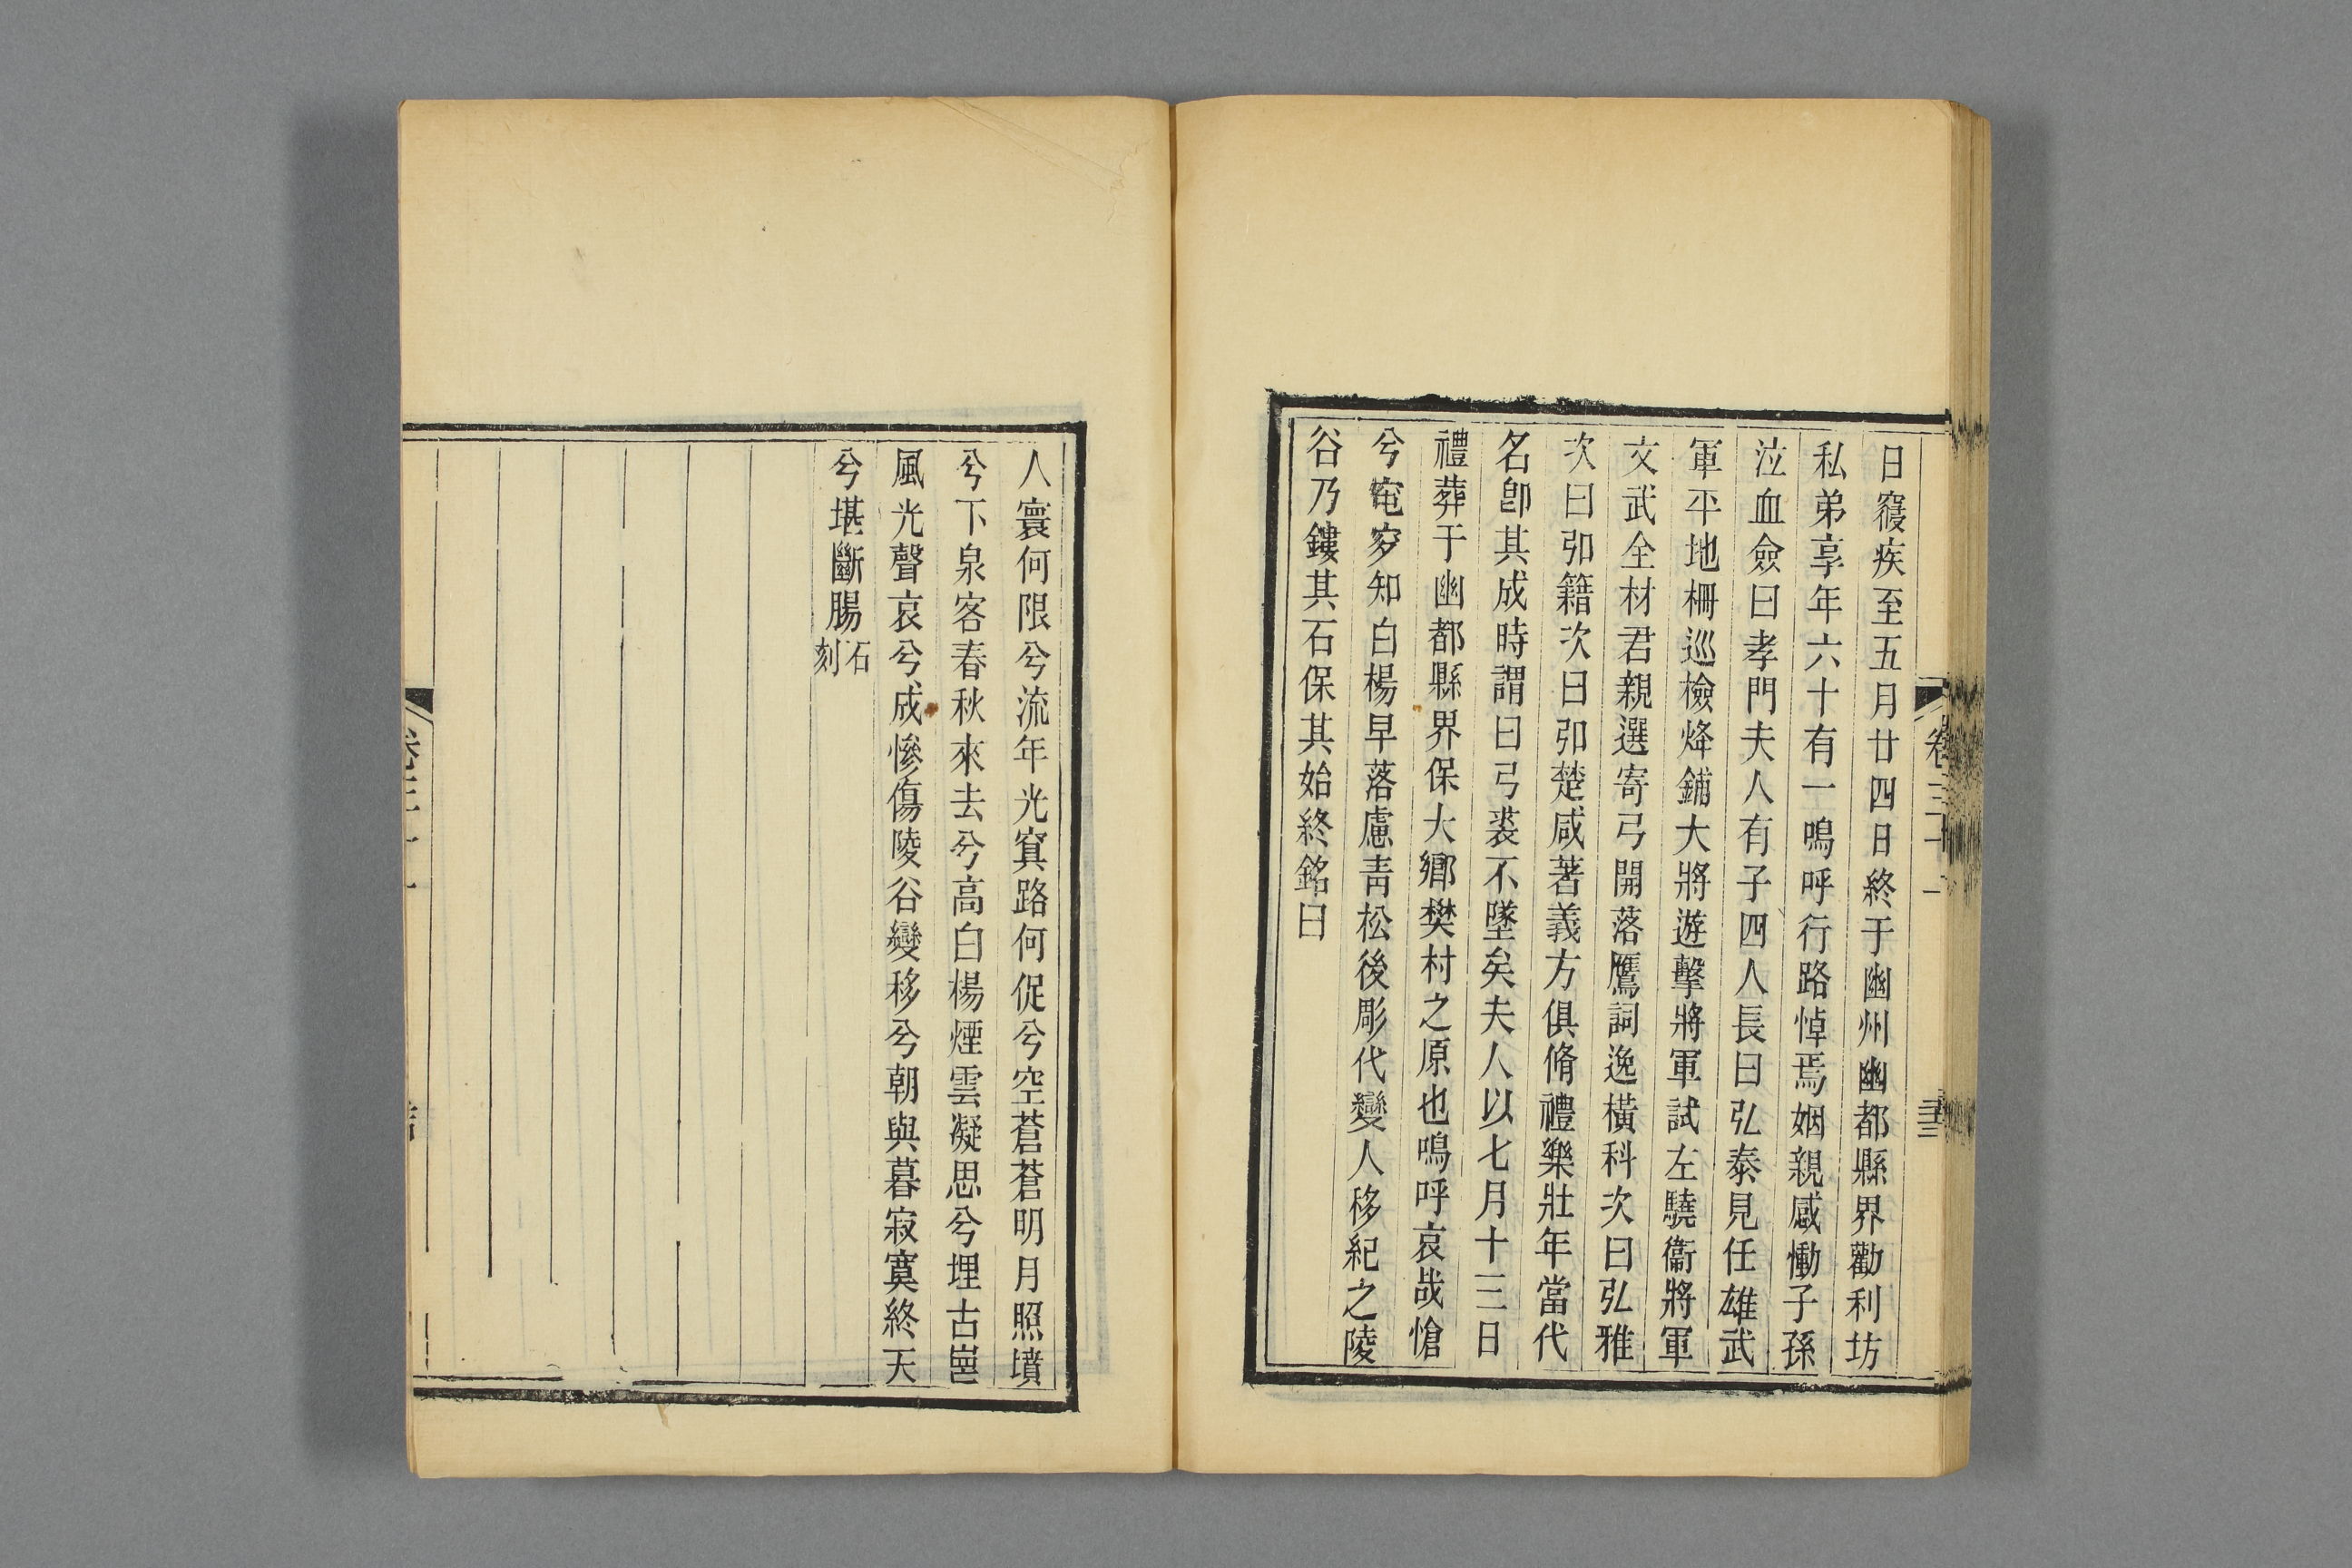 日寢疾至五月廿四日終于幽州幽都縣界勸利坊
私弟享年六十有一嗚呼行路悼焉姻親感慟子孫
泣血僉曰孝門夫人有子四人長曰弘泰見任雄武
軍平地柵巡檢烽鋪大將遊擊將軍試左驍衞將軍
文武全材君親選寄弓開落鴈詞逸橫科次曰弘雅
次曰弘籍次曰弘楚咸著義方俱脩禮樂壯年當代
名卽其成時謂曰弓裘不墜矣夫人以七月十三日
禮葬于幽都縣界保大鄉樊村之原也嗚呼哀哉愴
兮窀穸知白楊早落慮靑松後彫代變人移紀之陵
谷乃鏤其石保其始終銘曰
人寰何限兮流年光窴路何促兮空蒼蒼明月照墳
兮下泉客春秋來去兮高白楊煙雲凝思兮埋古
風光聲哀兮成慘傷陵谷變移兮朝與暮寂寞終天
兮堪斷腸石刻